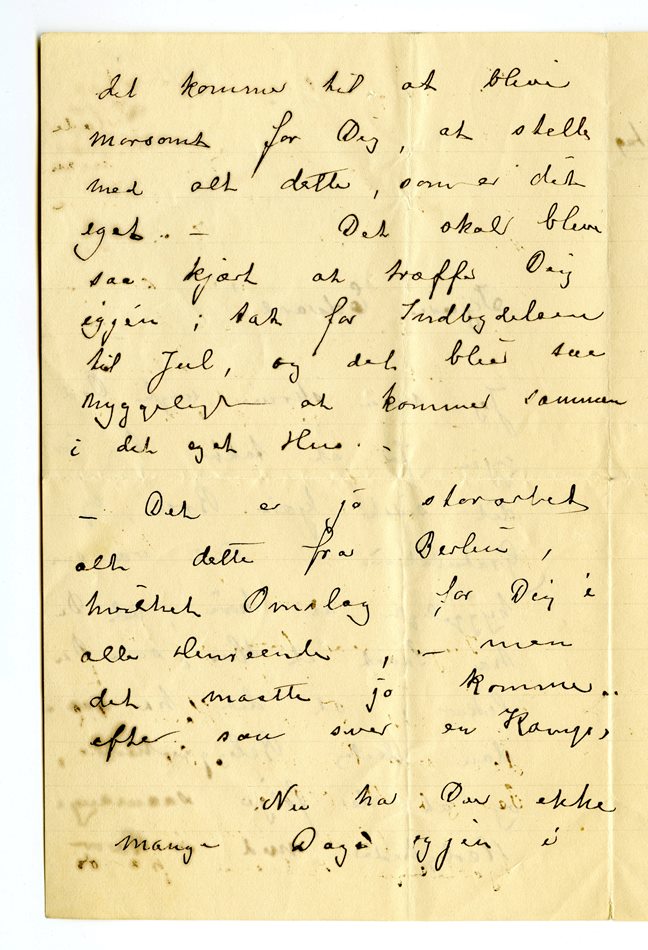 det komme til at blive
morsomt for Dig, at stelle
med alt dette, som er dit
eget. –  Det skal blive
saa kjært at træffe Dig
igjen; tak for Indbydelsen
til Jul, og det blir saa
hyggeligt at komme sammen
i dit eget Hus. –
– Det er jo storartet
alt dette fra Berlin,
hvilket Omslag for Dig i
alle Henseender, – men
det maatte jo komme..
efter saa svær en Kamp,
Nu har Du ikke
mange Dage igjen i